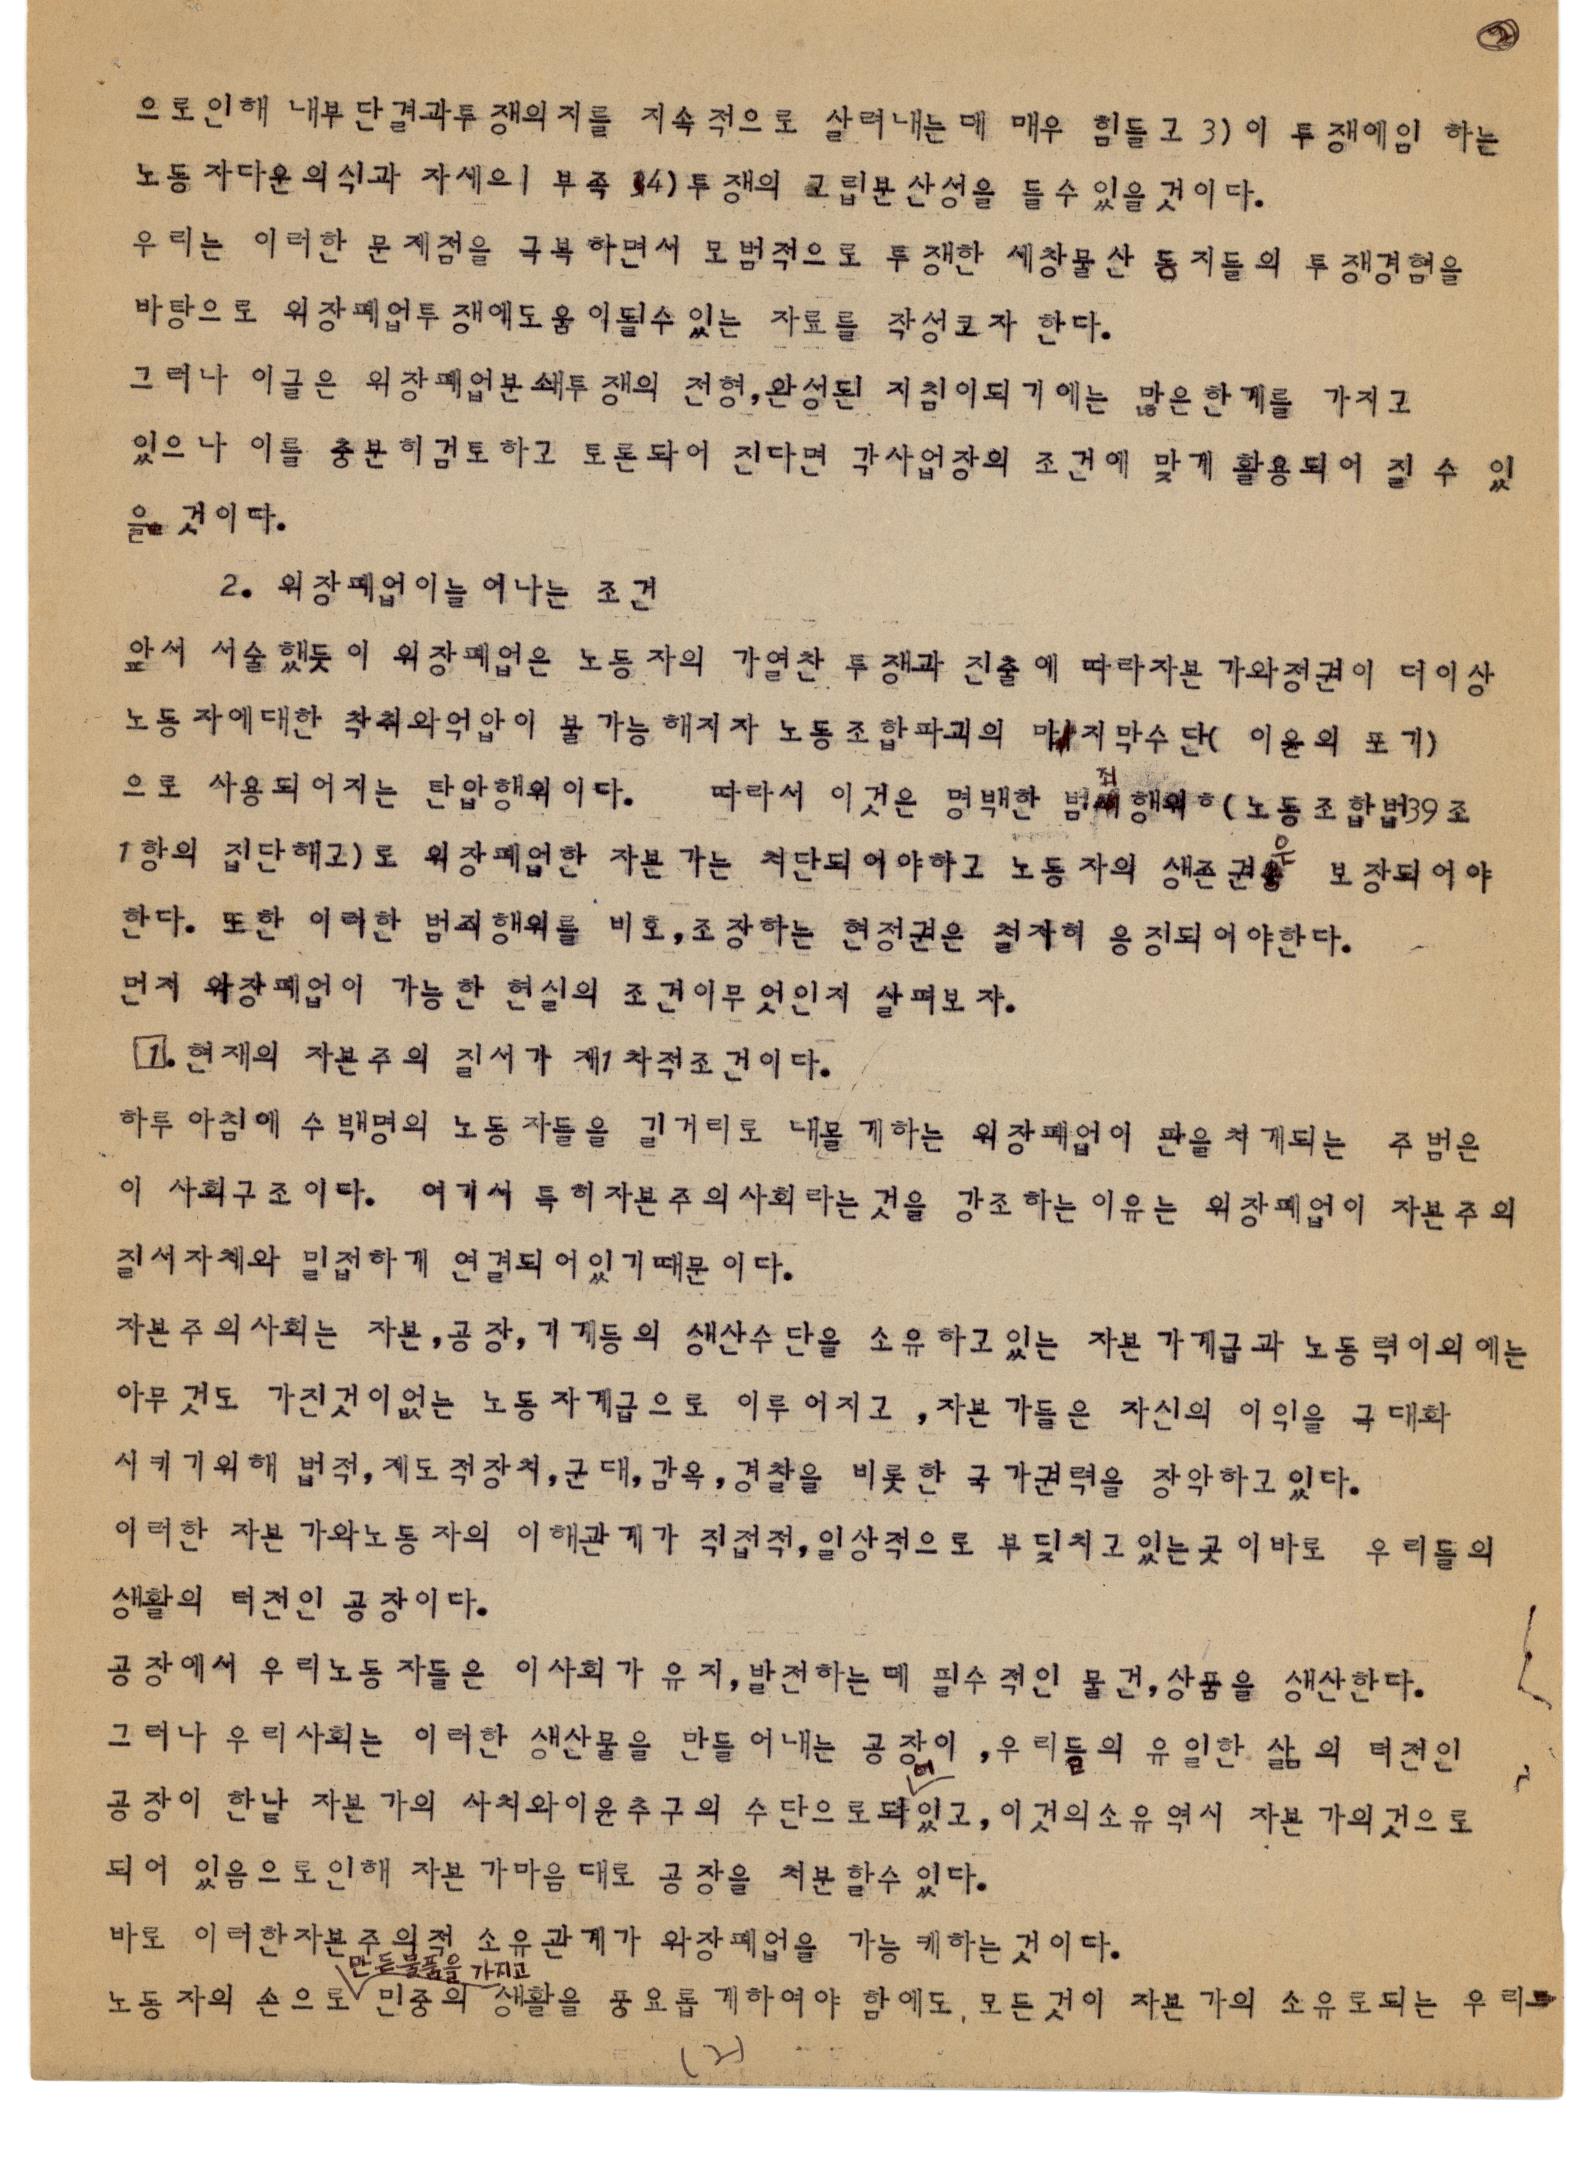 ②
으로인해 내부단결과투쟁의지를 지속적으로 살려내는데 매우 힘들고 3)이 투쟁에임 하는
노동자다운의식과 자세으ㅣ 부족 4)투쟁의 고립분산성을 들수있을것이다.
우리는 이러한 문제점을 극복하면서 모범적으로 투쟁한 세창물산 동지들의 투쟁경험을
바탕으로 위장폐업투쟁에도움이될수있는 자료를 작성코자 한다.
그러나 이글은 위장폐업분쇄투쟁의 전형,완성된 지침이되기에는 많은한계를 가지고
있으나 이를 충분히검토하고 토론되어 진다면 각사업장의 조건에 맞게 활용되어 질 수 있
을 것이다.
2. 위장폐업이늘어나는 조건
앞서 서술했듯이 위장폐업은 노동자의 가열찬 투쟁과 진출에 따라자본가와정권이 더이상
노동자에대한 착취와억압이 불가능해지자 노동조합파괴의 마지막수단( 이윤의 포기)
으로 사용되어지는 탄압행위이다. 따라서 이것은 명백한 범죄행위ㅎ(노동조합법39조
1항의 집단해고)로 위장폐업한 자본가는 처단되어야하고 노동자의 생존권은 보장되어야
한다. 또한 이러한 범죄행위를 비호,조장하는 현정권은 철저히 응징되어야한다.
먼저 위장폐업이 가능한 현실의 조건이무엇인지 살펴보자.
1.현재의 자본주의 질서가 제1차적조건이다.
하루아침에 수백명의 노동자들을 길거리로 내몰게하는 위장폐업이 판을치게되는 주범은
이 사회구조이다. 여기서 특히자본주의사회라는것을 강조하는이유는 위장폐업이 자본주의
질서자체와 밀접하게 연결되어있기때문이다.
자본주의사회는 자본,공장,기계등의 생산수단을 소유하고있는 자본가계급과 노동력이외에는
아무것도 가진것이없는 노동자계급으로 이루어지고 ,자본가들은 자신의 이익을 극대화
시키기위해 법적,제도적장치,군대,감옥,경찰을 비롯한 국가권력을 장악하고있다.
이러한 자본가와노동자의 이해관계가 직접적,일상적으로 부딪치고있는곳이바로 우리들의
생활의 터전인 공장이다.
공장에서 우리노동자들은 이사회가 유지,발전하는데 필수적인 물건,상품을 생산한다.
그러나 우리사회는 이러한 생산물을 만들어내는 공장이 ,우리들의 유일한 삶의 터전인
공장이 한낱 자본가의 사치와이윤추구의 수단으로되어있고,이것의소유역시 자본가의것으로
되어 있음으로인해 자본가마음대로 공장을 처분할수있다.
바로 이러한자본주의적 소유관계가 위장폐업을 가능케하는것이다.
노동자의 손으로 만든물품을 가지고 민중의 생활을 풍요롭게하여야 함에도, 모든것이 자본가의 소유로되는 우리
(2)